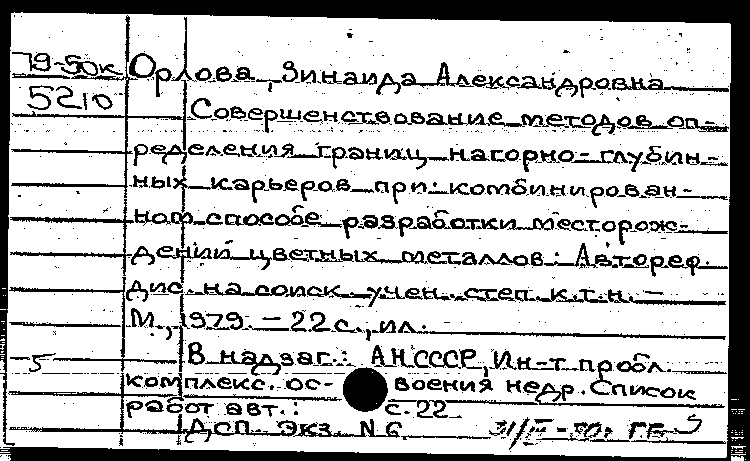 79-50к Орлова, Зинаида Александровна
5210 Совершенствование методов оп-
ределения границ нагорно-глубин-
ных карьеров при комбинирован-
ном способе разработки месторож-
дений цветных металлов: Автореф.
дис. на соиск. учен. степ. к.т.н. –
М., 1979. – 22 с., ил.
5 В надзаг.: АН СССР, Ин-т пробл.
комплекс. ос- воения недр. Список
работ авт.: с. 22
ДСП. Экз. N 6.